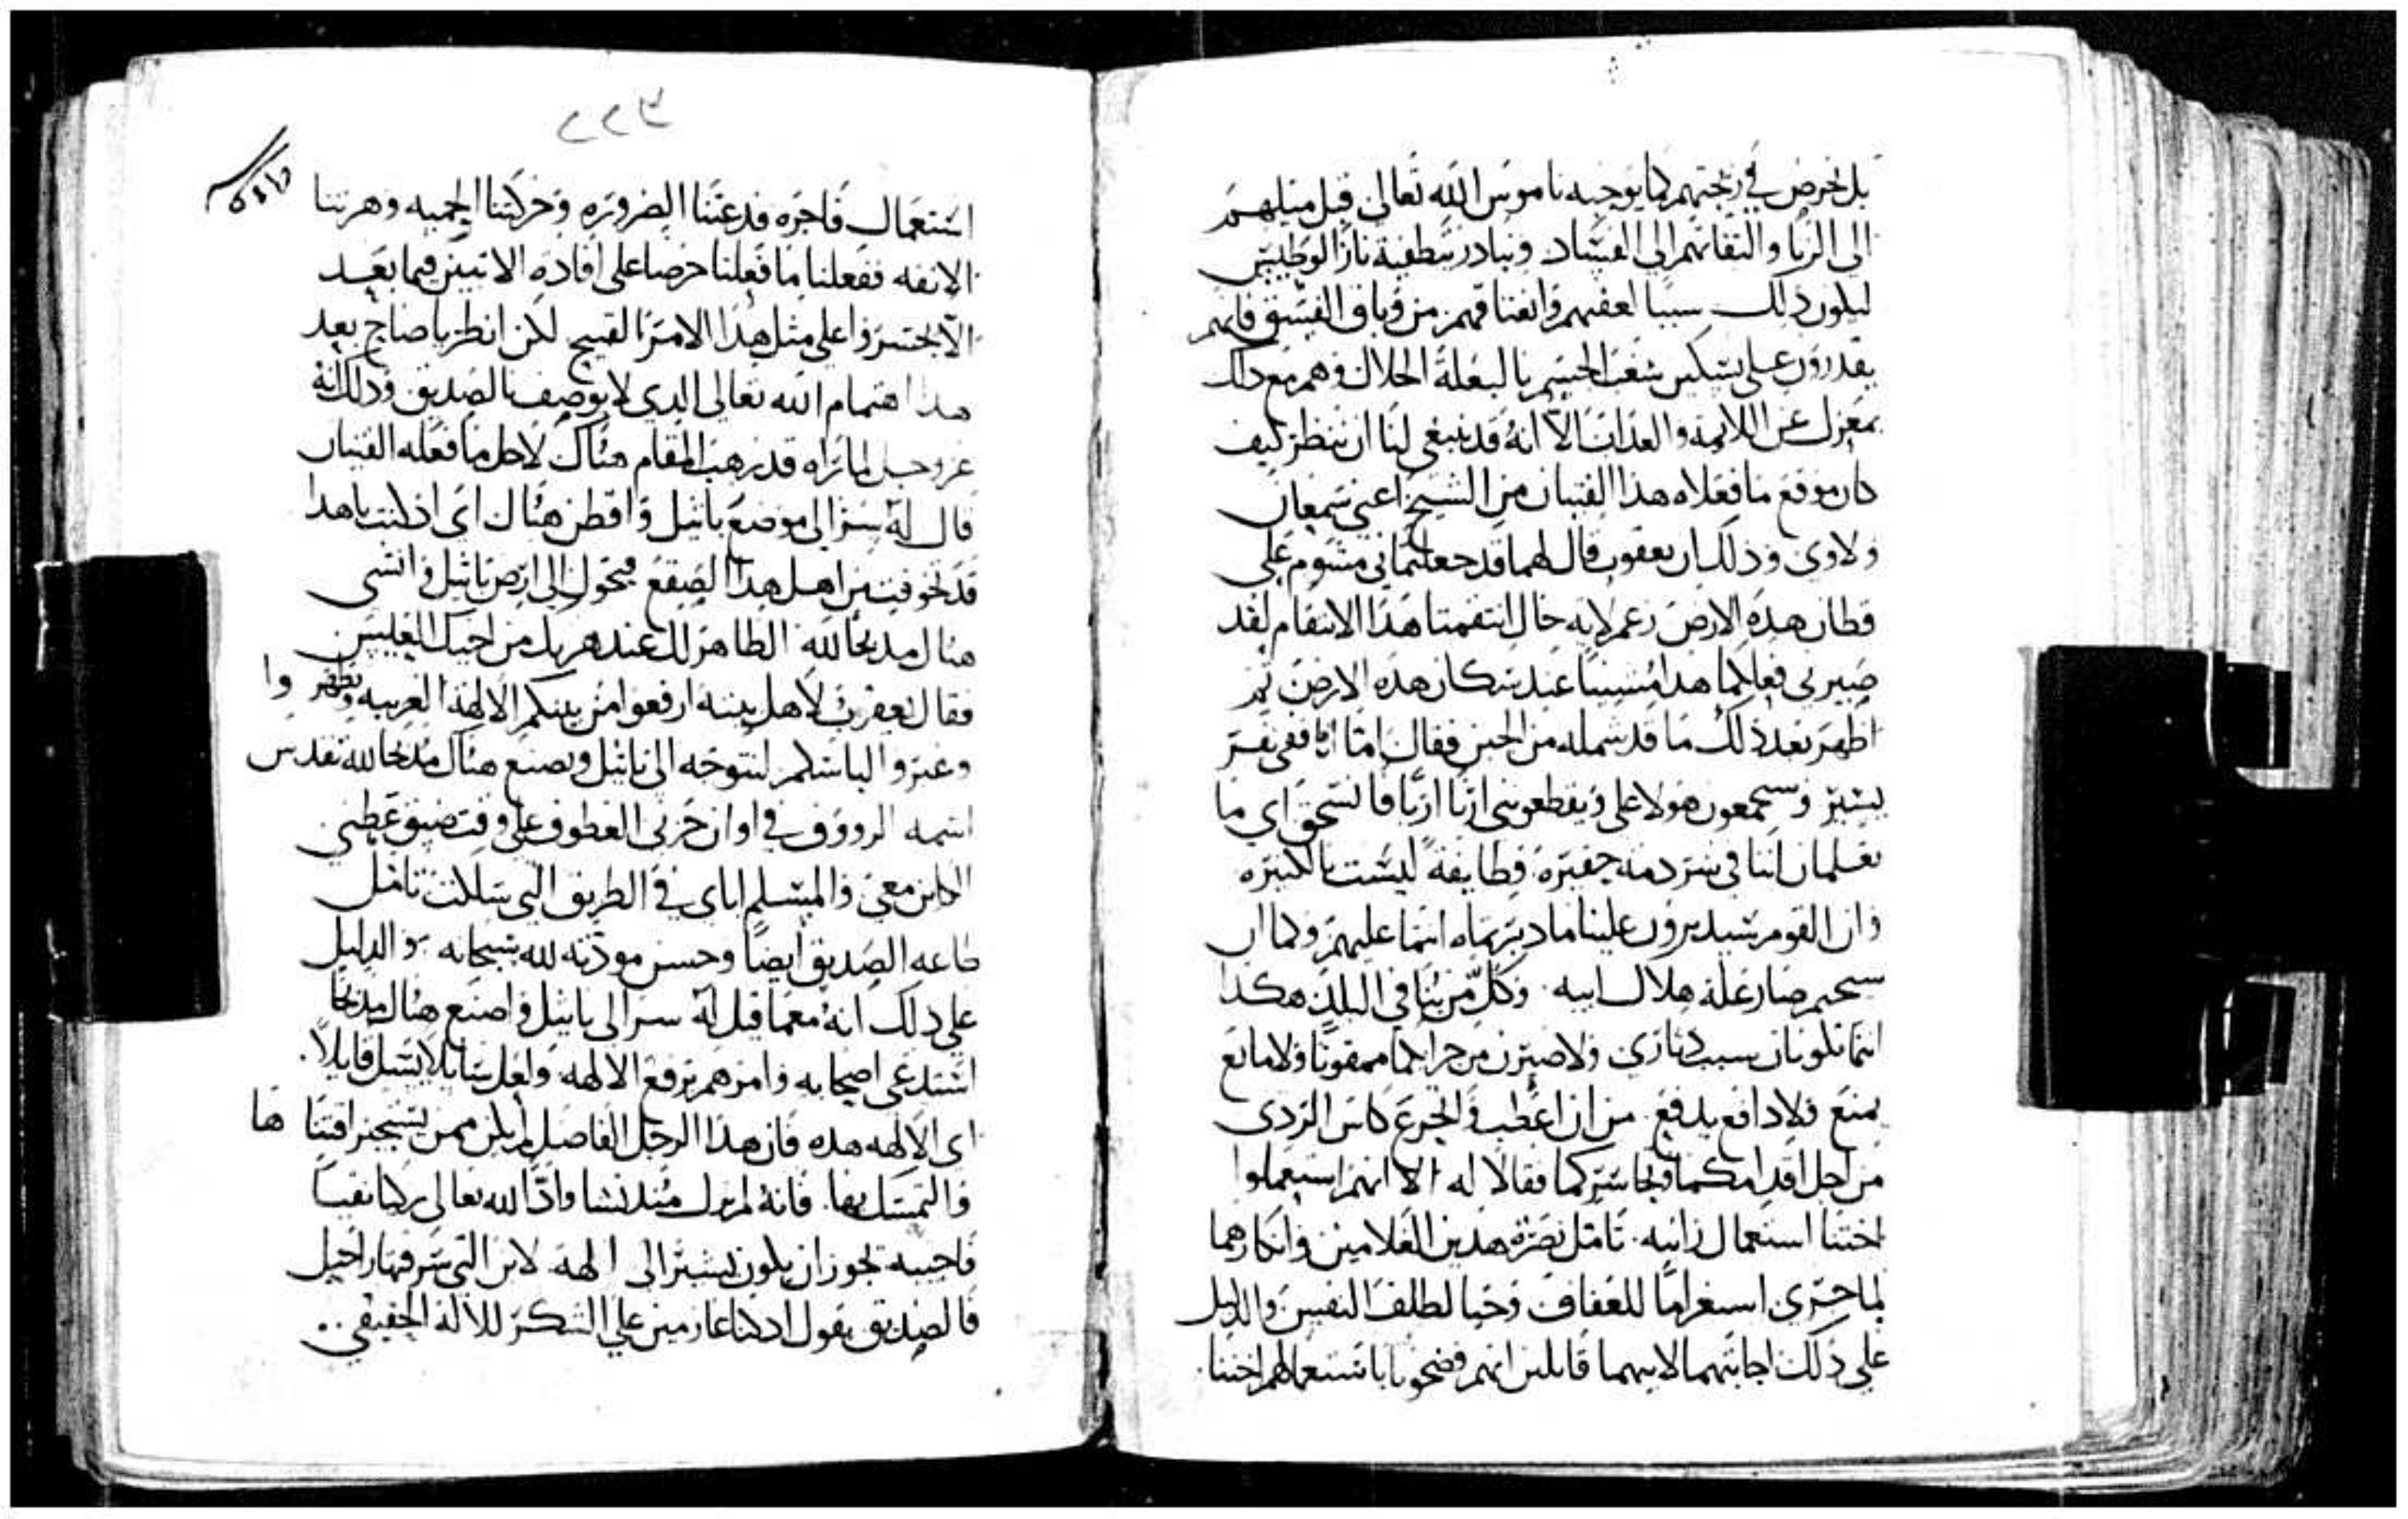 بل نحرص في زيجتهم كما يوجبه ناموس الله تعالى قبل ميلهم
الى الزنا والتفاتهم الى الفساد ونبادر بتطفية نار الوطيس
ليكون ذلك سببا لعفتهم وانعتاقهم من وثاق الفسق فانهم
يقدرون على تسكين شغب الجسم بالبعلة الحلال وهم مع ذلك
بمعزل عن اللايمه والعذاب الا انه قد ينبغي لنا ان ننظر كيف
كان موقع ما فعلاه هذا الفتيان من الشيخ اعني سمعان
ولاوي وذلك ان يعقوب قال لهما قد جعلتماني مشوم على
قطان هذه الارض زعم لانه حال انتقمتا هذا الانتقام لقد
صيرني فعلكما هذا مسيئا عند سكان هذه الارض ثم
اظهر بعد ذلك ما قد شمله من الجبن فقال اما انا ففي نفر
يسير وسيجمعون هولا علي ويقطعونني اربا اربا فانسحق اي ما
تعلمان اننا في شردمة حقيره وطايفة ليست بالكثيره
وان القوم سيديرون علينا ما دبرتماه انتما عليهم وكما ان
سحيم صار علة هلاك ابيه وكل من في البلد هكذا
انتما تكونان سبب دماري ولاصيرن من جرايكما ممقوتا ولا مانع
يمنع ولا دافع يدفع من ان اعطب واتجرع كاس الردى
من اجل اقدامكما وتجاسركما فقالا له الا انهم استعملوا
اختنا استعمال زانيه تامل نصرة هذين الغلامين وانكارهما
لما جرى استغراما للعفاف وحبا لطلف النفس والدليل
على ذلك اجابتهما لابيهما قايلين انهم فضحونا باستعمالهم اختنا
٢٢٦
استعمال فاجره فدعتنا الضروره وحركتنا الحميه وهزتنا
الانفه ففعلنا ما فعلنا حرصا على افادة الاتيين فيما بعد
الا يجتسروا على مثل هذا الامر القبيح لكن انظر يا صاح بعد
هذا اهتمام الله تعالى الذي لا يوصف بالصديق وذلك انه
عز وجل لما راه قد رهب المقام هناك لاجل ما فعله الفتيان
قال له سر الى موضع باثيل واقطن هناك اي اذ كنت يا هذا
قد تخوفت من اهل هذا الصقع فتحول الى ارض باثيل وانشي
هناك مدبحا لله الظاهر لك عند هربك من اخيك العيس
فقال يعقوب لاهل بيته ارفعوا من بينكم الالهة الغريبه وتطهروا
وغيروا لباسكم لنتوجه الى باثيل ونصنع هناك مدبحا لله تقدس
اسمه الرووف في اوان حزني العطوف علي وقت ضيق عطبي
الكاين معي والمسلم اياي في الطريق التي سلكت تامل
طاعه الصديق ايضا وحسن مودته لله سبحانه والدليل
على ذلك انه معما قيل له سر الى باثيل واصنع هناك مدبحا
استدعى اصحابه وامرهم برفع الالهه ولعل سايلا يسل قايلا
اي الالهه هذه فان هذا الرجل الفاضل لم يكن ممن يستجيز اقتناها
والتمسك بها فانه لم يزل منذ نشا وادا لله تعالى بركنا نقيا
فاجيبه يجوز ان يكون يشير الى الهة لابن التي سرقتها راحيل
فالصديق يقول اد كنا عازمين على الشكر للاله الحقيقي